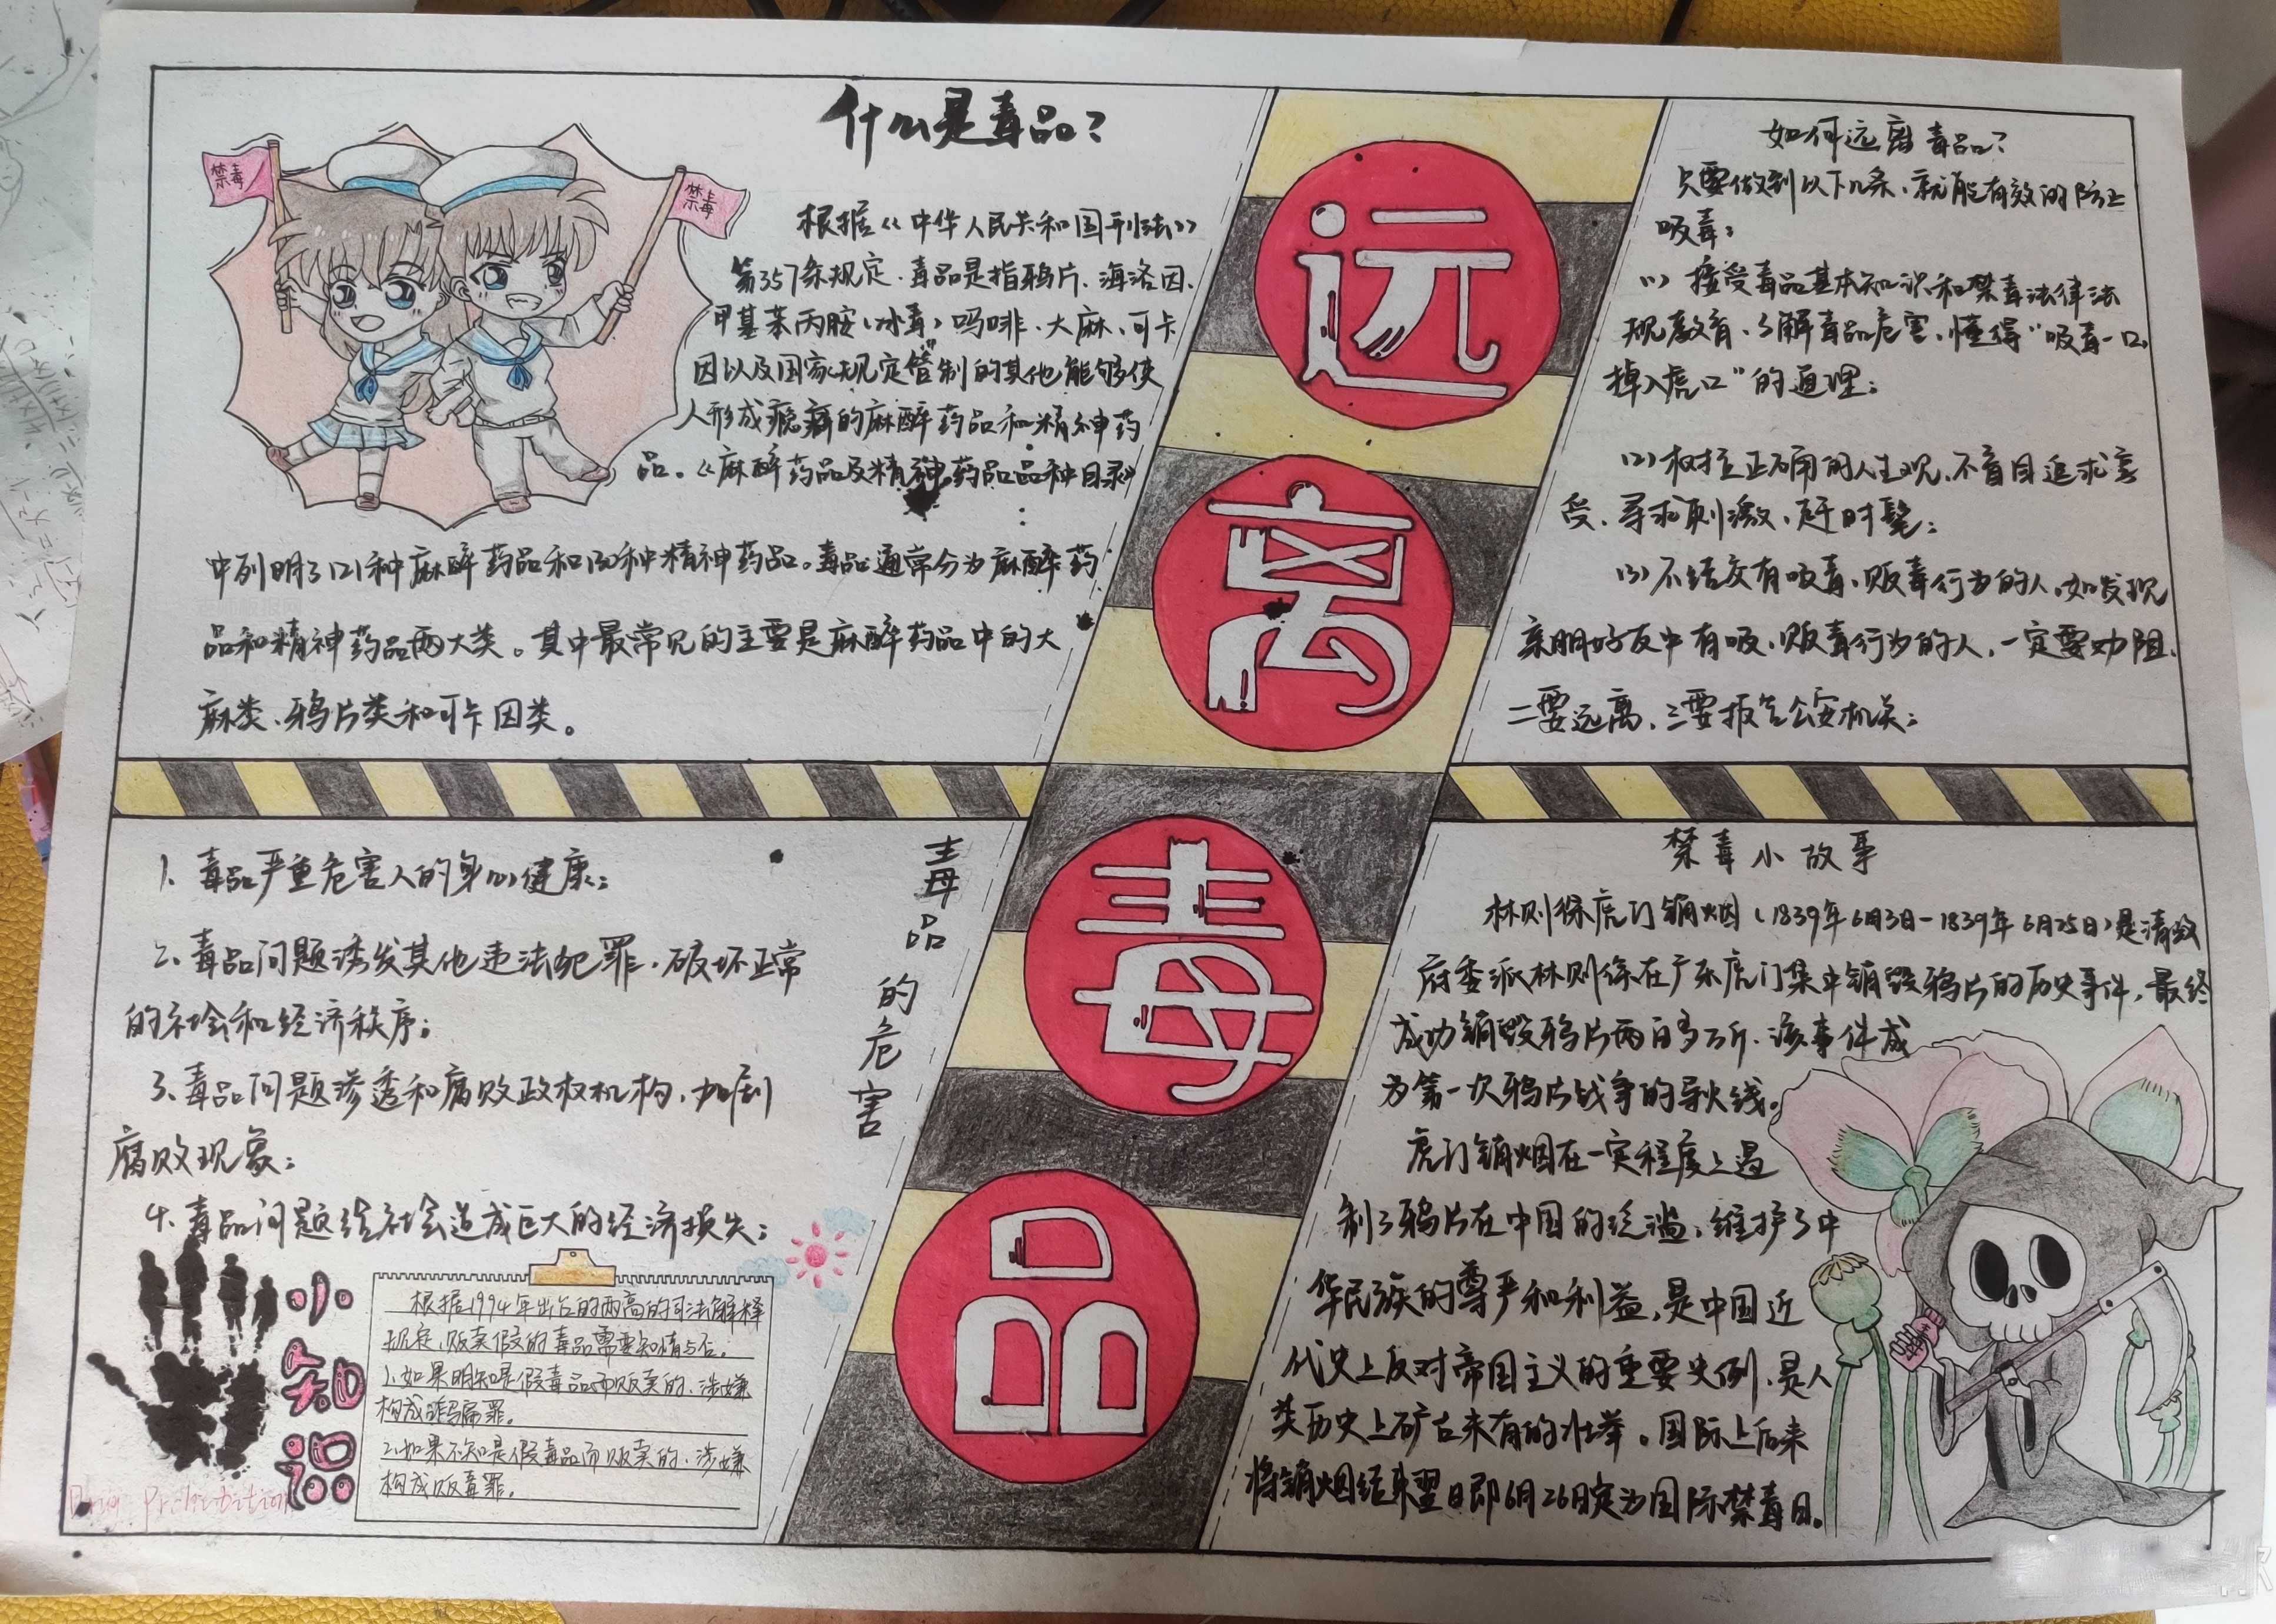 什么是毒品?
禁毒
禁毒
根据《中华人民共和国刑法》
第357条规定、毒品是指鸦片、海洛因、
甲基苯丙胺(冰毒)吗啡、大麻、可卡
因以及国家规定管制的其他能够使
人形成瘾癖的麻醉药品和精神药
品。《麻醉药品及精神药品品种目录》
中列明了121种麻醉药品和130种精神药品。毒品通常分为麻醉药
品和精神药品两大类。其中最常见的主要是麻醉药品中的大
麻类、鸦片类和可卡因类。
远
离
毒
品
如何远离毒品?
只要做到以下几条、就能有效的防止
吸毒:
(1) 接受毒品基本知识和禁毒法律法
规教育、了解毒品危害、懂得“吸毒一口,
掉入虎口”的道理;
(2)树立正确的人生观、不盲目追求享
受、寻求刺激、赶时髦;
(3)不结交有吸毒、贩毒行为的人、如发现
亲朋好友中有吸、贩毒行为的人,一定要劝阻、
二要远离、三要报告公安机关;
毒品的危害
1、毒品严重危害人的身心健康;
2、毒品问题诱发其他违法犯罪、破坏正常
的社会和经济秩序;
3、毒品问题渗透和腐败政权机构、加剧
腐败现象;
4、毒品问题给社会造成巨大的经济损失;
小知识
根据1994年出台的两高的司法解释
规定、贩卖假的毒品需要知情与否。
1、如果明知是假毒品而贩卖的、涉嫌
构成诈骗罪。
2、如果不知是假毒品而贩卖的、涉嫌
构成贩毒罪。
Drug Prohibition
禁毒小故事
林则徐虎门销烟(1839年6月3日-1839年6月25日)是清政
府委派林则徐在广东虎门集中销毁鸦片的历史事件,最终
成功销毁鸦片两百多万斤、该事件成
为第一次鸦片战争的导火线。
虎门销烟在一定程度上遏
制了鸦片在中国的泛滥、维护了中
华民族的尊严和利益,是中国近
代史上反对帝国主义的重要史例、是人
类历史上旷古未有的壮举。国际上后来
将销烟结束翌日即6月26日定为国际禁毒日。